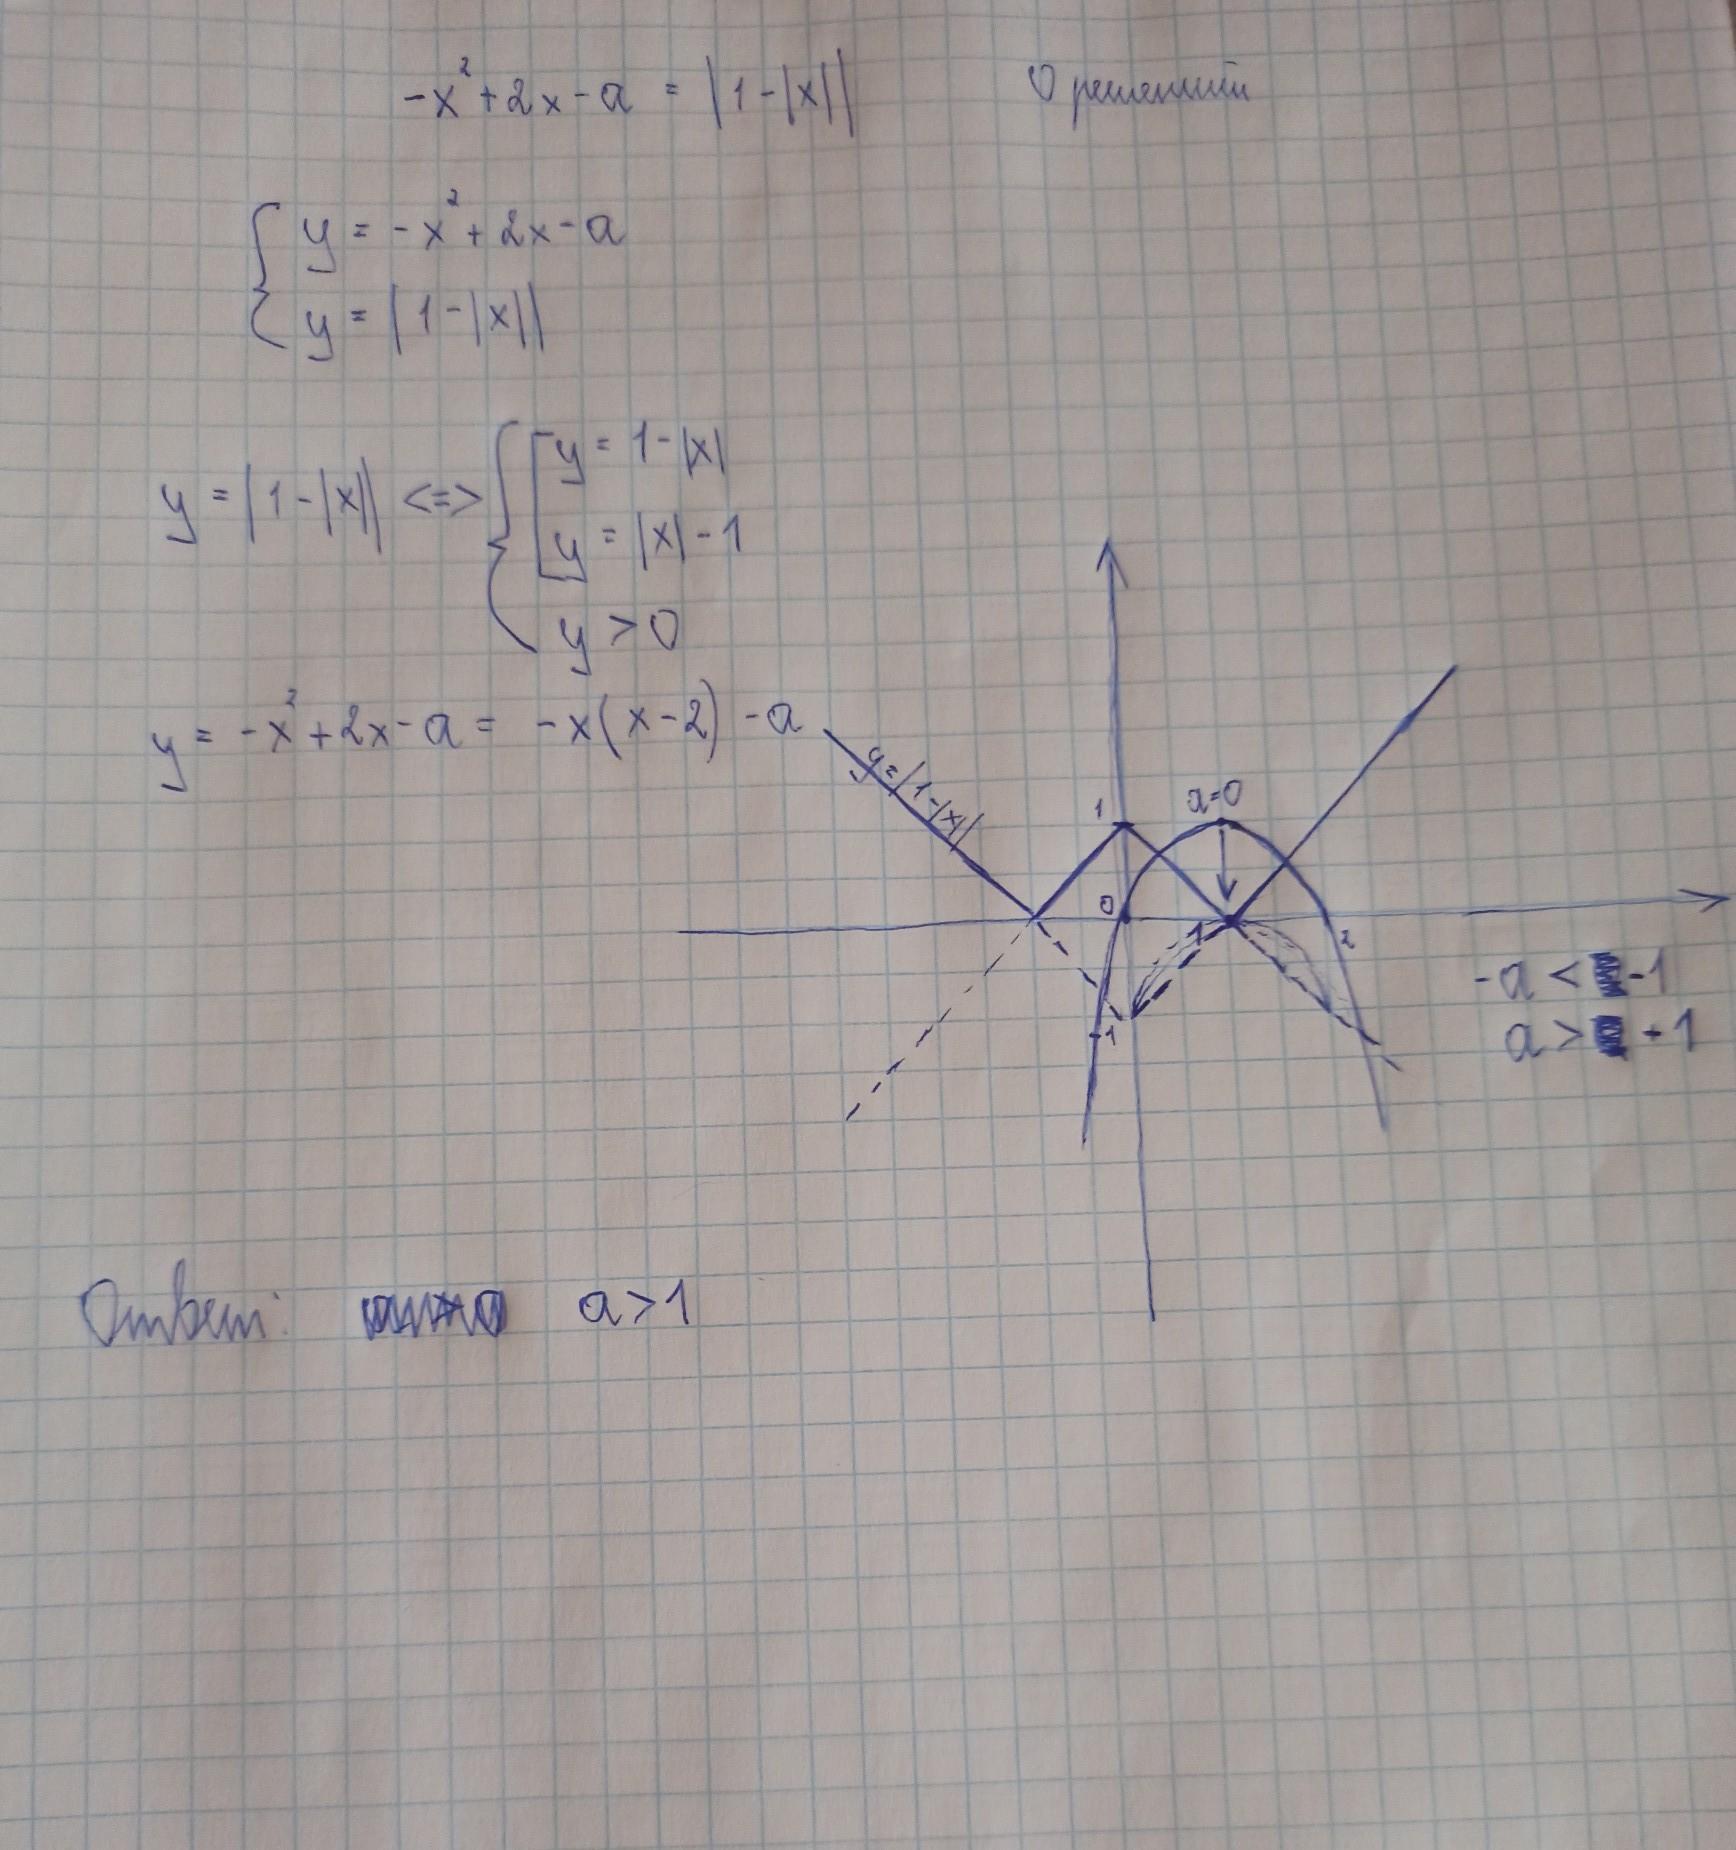 -x² + 2x - a = |1 - |x|| 0 решений
{ y = -x² + 2x - a
{ y = |1 - |x||
y = |1 - |x|| <=> { [ y = 1 - |x|
[ y = |x| - 1
y > 0
y = -x² + 2x - a = -x(x-2) - a
y = |1 - |x||
1
a=0
0
1
2
-1
-a < -1
a > +1
Ответ: a > 1